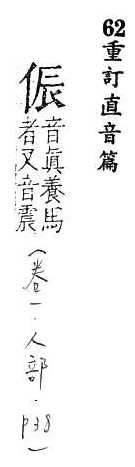 62重訂直音篇
侲
音眞養馬
者又音震
（卷一．人部．p38）